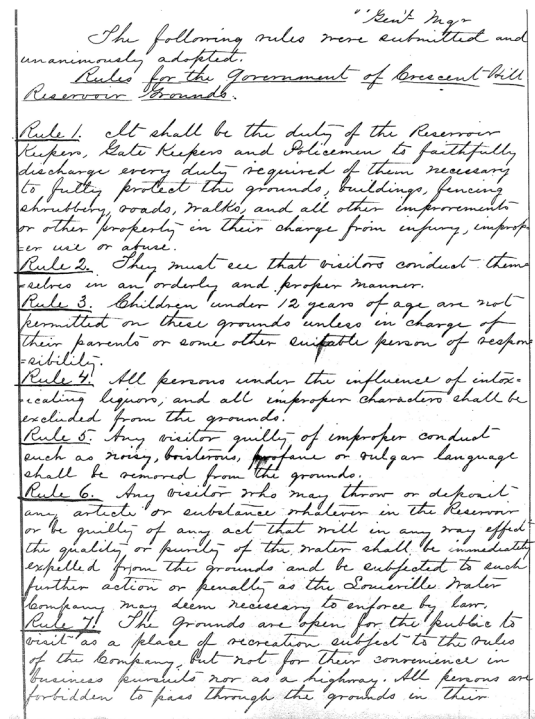 " " Gen'l Mgr
The following rules were submitted and
unanimously adopted.
Rules for the Government of Crescent Hill
Reservoir Grounds.
Rule 1. It shall be the duty of the Reservoir
Keepers, Gate Keepers and Policemen to faithfully
discharge every duty required of them necessary
to fully protect the grounds, buildings, fencing
shrubbery, roads, walks, and all other improvements
or other property in their charge from injury, improp=
=er use or abuse.
Rule 2. They must see that visitors conduct them=
=selves in an orderly and proper manner.
Rule 3. Children under 12 years of age are not
permitted on these grounds unless in charge of
their parents or some other suitable person of respon=
=sibility.
Rule 4. All persons under the influence of intox=
=icating liquors, and all improper characters shall be
excluded from the grounds.
Rule 5. Any visitor guilty of improper conduct
such as noisy, boisterous, profane or vulgar language
shall be removed from the grounds.
Rule 6. Any visitor who may throw or deposit
any article or substance whatever in the Reservoir
or be guilty of any act that will in any way effect
the quality or purity of the water shall be immediately
expelled from the grounds and be subjected to such
further action or penalty as the Louisville Water
Company may deem necessary to enforce by law.
Rule 7. The Grounds are open for the public to
visit as a place of recreation subject to the rules
of the Company, but not for their convenience in
business pursuits nor as a highway. All persons are
forbidden to pass through the grounds in their